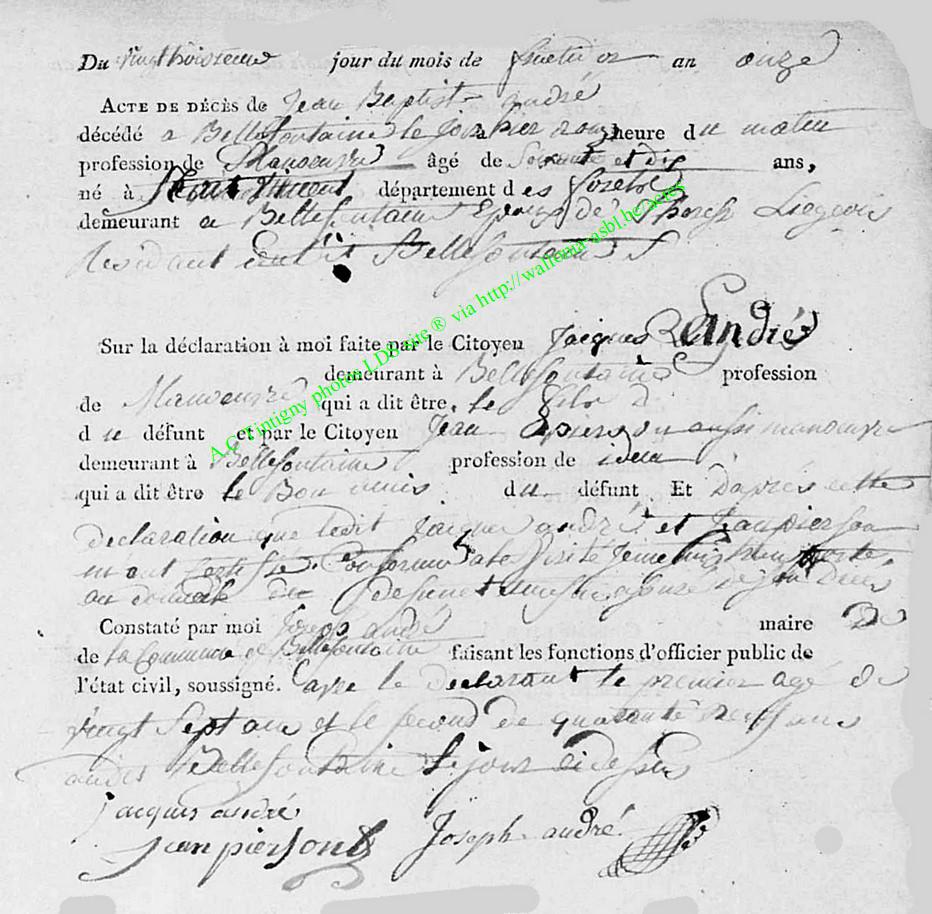 Du vingt troisieme jour du mois de fructidor an onze
ACTE DE DÉCÈS de Jean Baptist andré
décédé a Bellefontaine le heure du matin
profession de Manoeuvre âgé de Soixante et dix ans,
né à département des forets
demeurant a Bellefontaine Epoux de Therese Liegeois
Residant audit Bellefontaine
Sur la déclaration à moi faite par le Citoyen Jacques André
demeurant à Bellefontaine profession
de Manoeuvre qui a dit être le fils
du défunt et par le Citoyen Jean pierson aussi manoeuvre
demeurant à Bellefontaine profession de idem
qui a dit être le Bon amis du défunt Et Daprés cette
declaration que ledit Jacques andré et Jean pierson
mont Certifié Conforme a la visite
au domicile du defunt
Constaté par moi Joseph andré maire De
de La Commune de Bellefontaine faisant les fonctions d'officier public de
l'état civil, soussigné. avec le declarant le premier agé de
vingt Sept ans et le second de quarante neuf ans
audit Bellefontaine le jour ci dessus
jacques andré
jean pierson Joseph andré
A.G.Tintigny photos LDB site ® via http://wallonia-asbl.be/actes